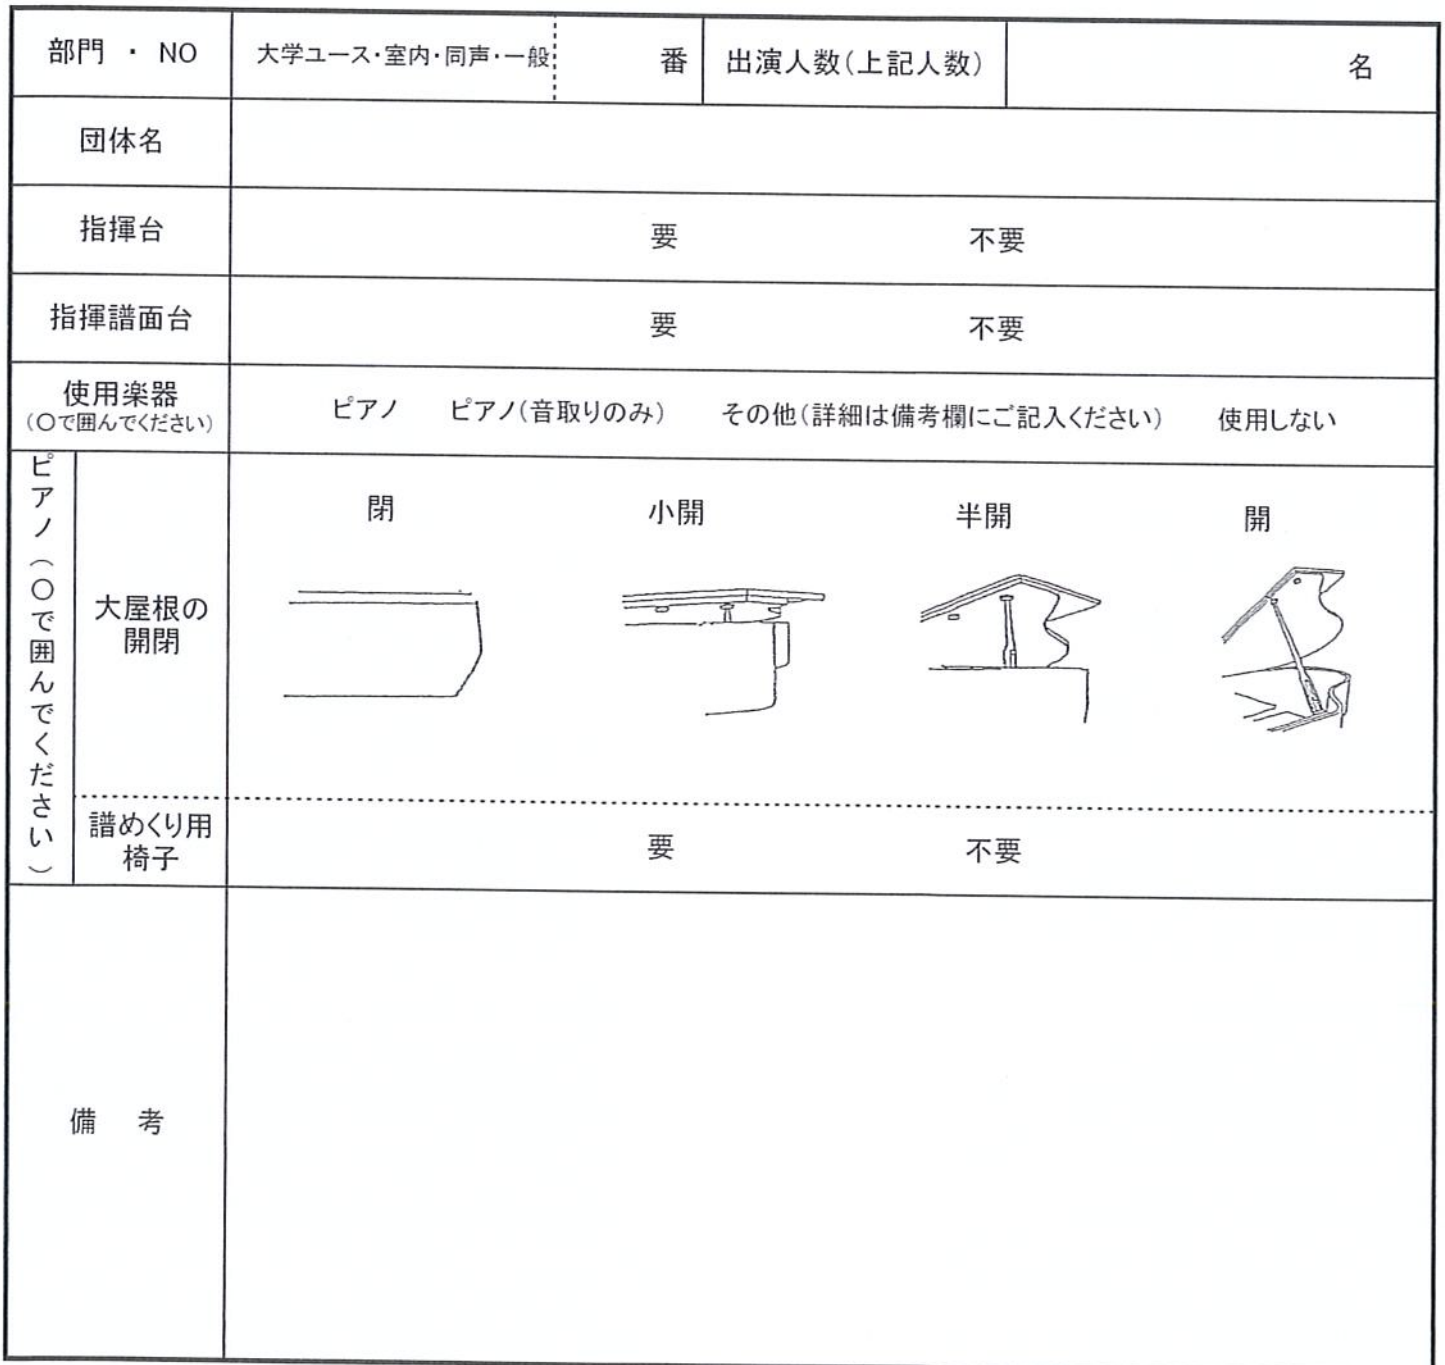 部門 ・ NO 大学ユース・室内・同声・一般 番 出演人数(上記人数) 名
団体名
指揮台 要 不要
指揮譜面台 要 不要
使用楽器
(〇で囲んでください)
ピアノ ピアノ(音取りのみ) その他(詳細は備考欄にご記入ください) 使用しない
ピアノ(〇で囲んでください)
大屋根の
開閉
閉 小開 半開 開
譜めくり用
椅子
要 不要
備 考